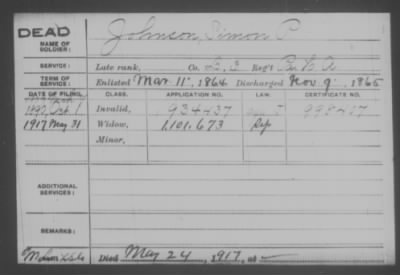 DEAD
NAME OF SOLDIER: Johnson, Simon P.
SERVICE: Late rank, Co. Reg't
TERM OF SERVICE: Enlisted Mar. 11, 1864 Discharged Nov. 9, 1865
DATE OF FILING. CLASS. APPLICATION NO. LAW. CERTIFICATE NO.
Invalid, 934437
1917 May 31 Widow, 1,101,673
Minor,
ADDITIONAL SERVICES:
REMARKS:
Died May 24, 1917, at —